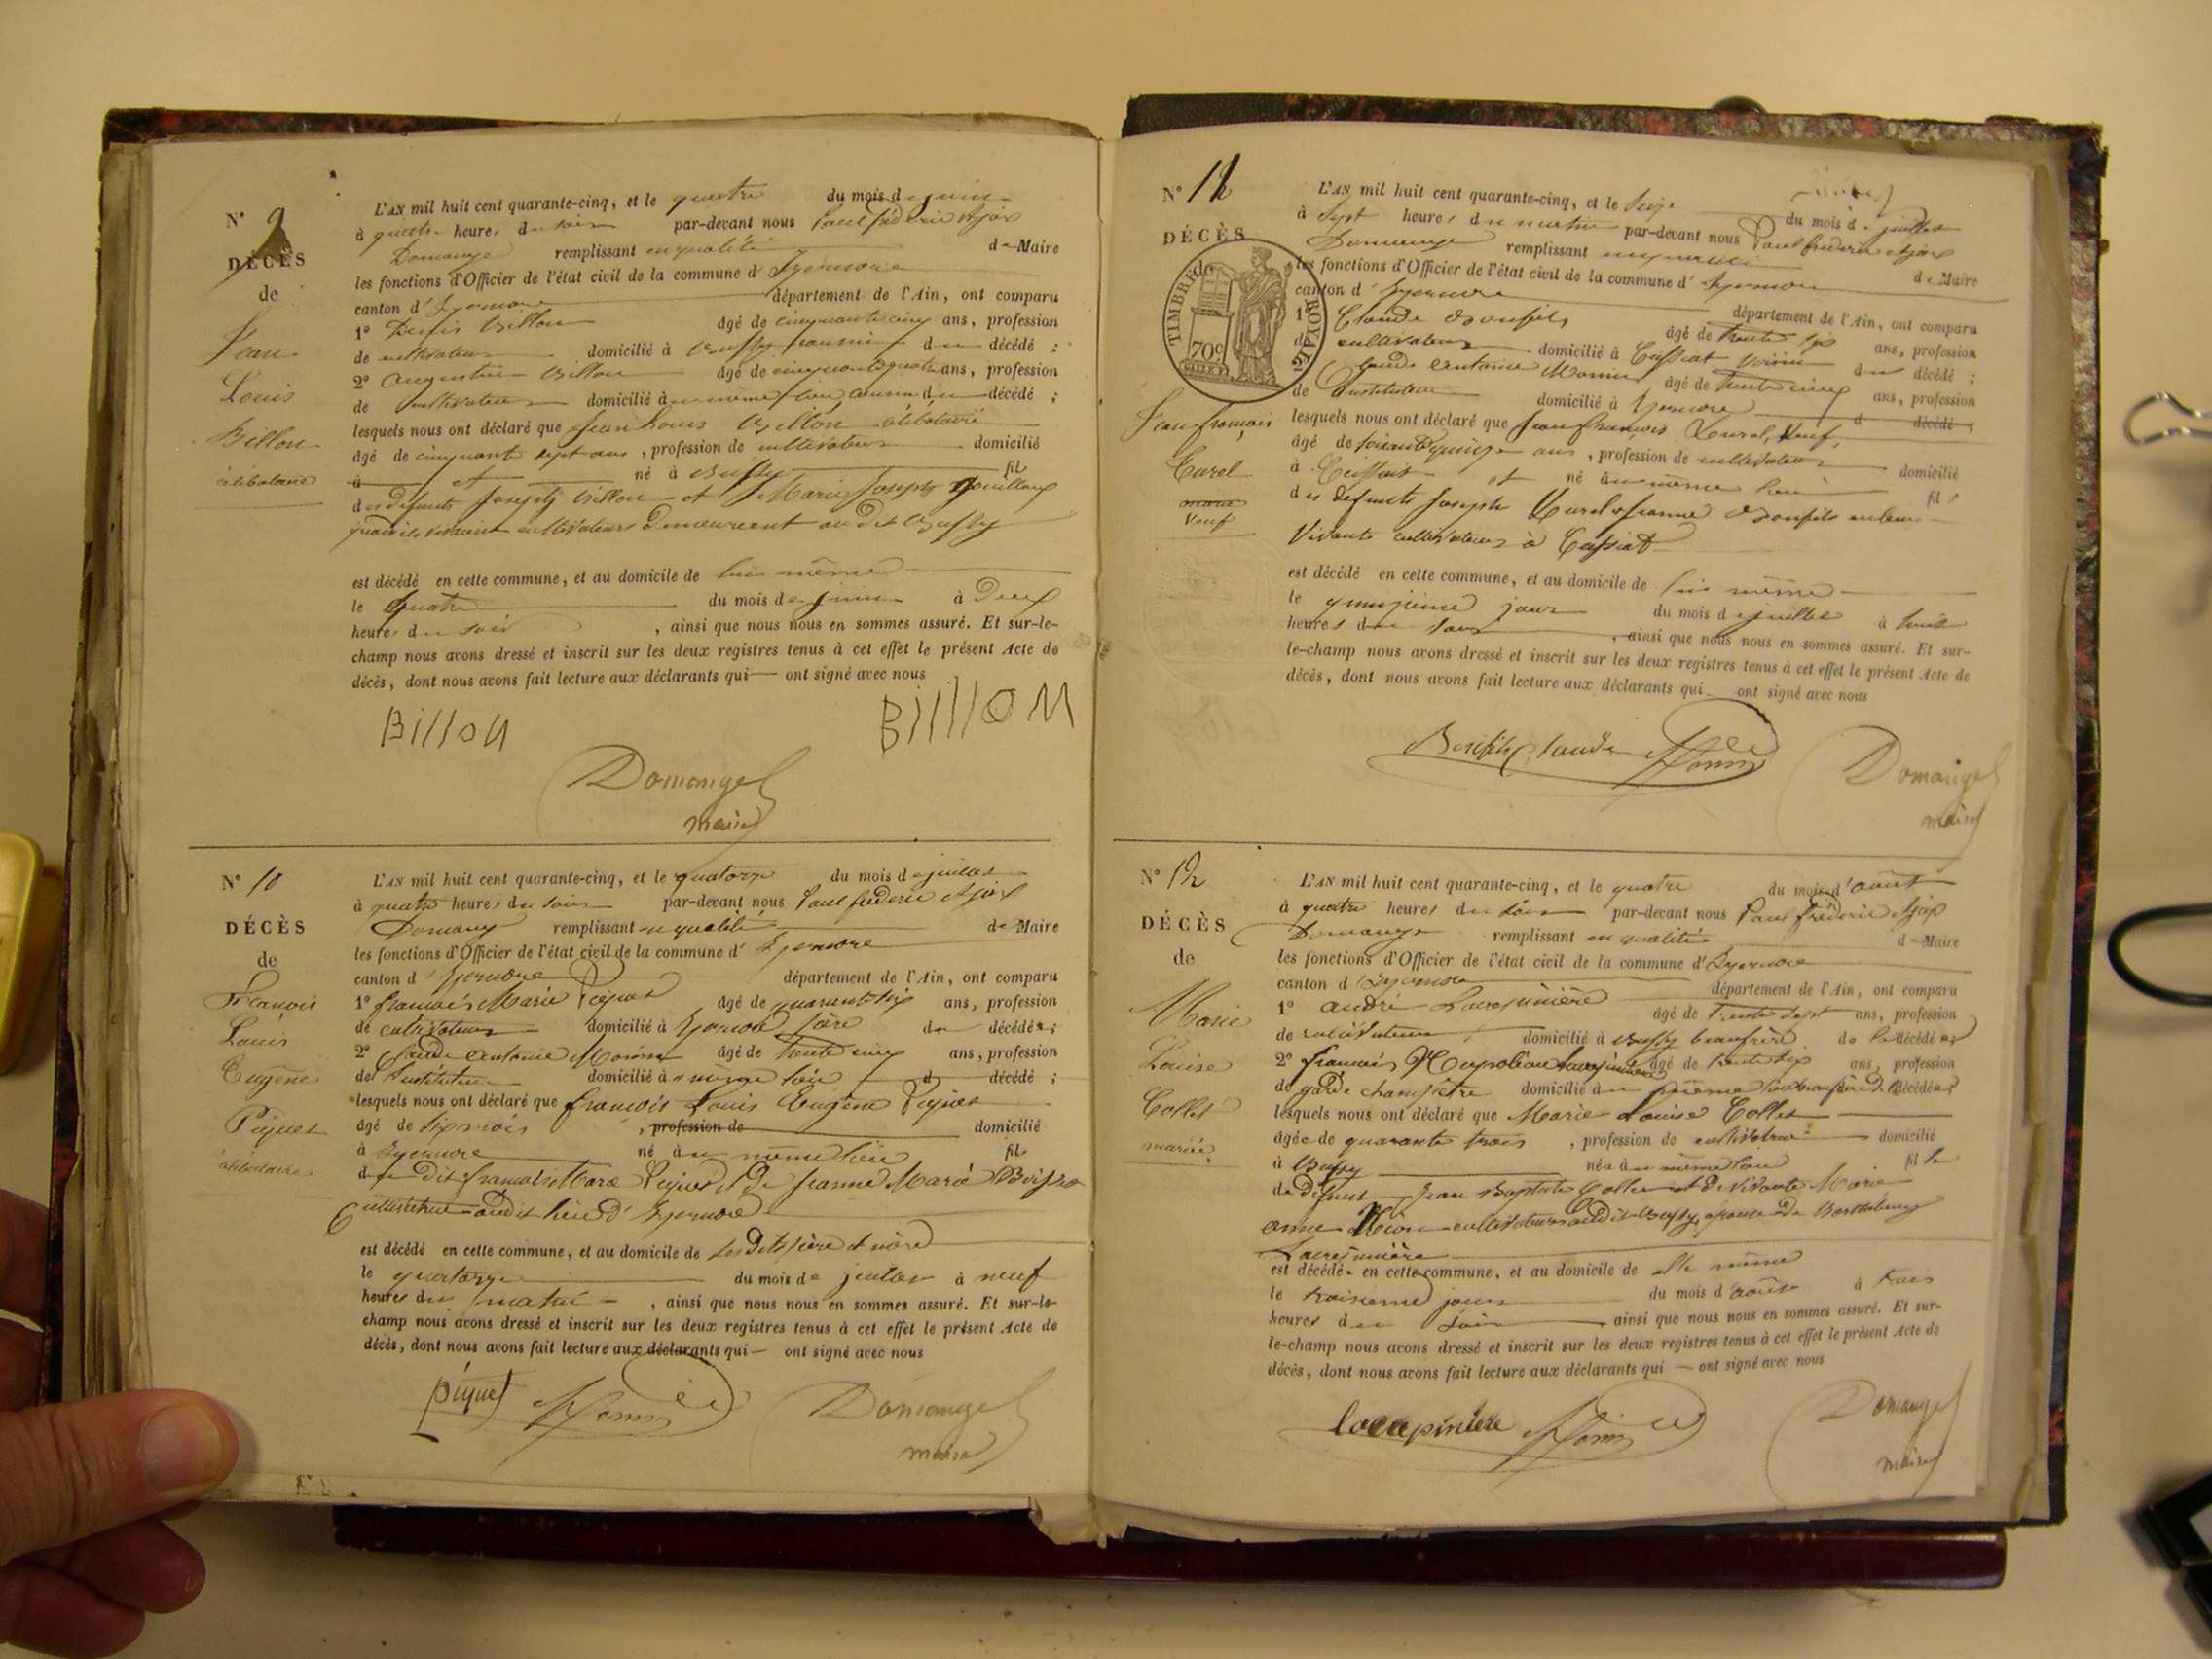 N° 9
DÉCÈS
de
Jean
Louis
Billon
célibataire
L'AN mil huit cent quarante-cinq, et le quatre du mois de juin
à quatre heures du soir par-devant nous Paul fréderic Ajax
Domange remplissant en qualité de Maire
les fonctions d'Officier de l'état civil de la commune d'Izernore
canton d'Izernore département de l'Ain, ont comparu
1° Billon âgé de cinquante cinq ans, profession
de cultivateur domicilié à Bussy cousin du décédé ;
2° augustin Billon âgé de cinquante quatre ans, profession
de cultivateur domicilié au même lieu cousin du décédé ;
lesquels nous ont déclaré que Jean Louis Billon célibataire
âgé de cinquante sept ans, profession de cultivateur domicilié
à et né à Bussy fils
des défunts Joseph Billon et Marie Joseph
quand ils vivaient cultivateurs demeurant au dit Bussy
est décédé en cette commune, et au domicile de lui même
le quatre du mois de juin à Deux
heures du soir, ainsi que nous nous en sommes assuré. Et sur-le-
champ nous avons dressé et inscrit sur les deux registres tenus à cet effet le présent Acte de
décès, dont nous avons fait lecture aux déclarants qui — ont signé avec nous
BillоN BillloN
Domange
maire
N° 10
DÉCÈS
de
Francois
Louis
Eugène
Piquet
célibataire
L'AN mil huit cent quarante-cinq, et le quatorze du mois de juillet
à quatre heures du soir par-devant nous Paul fréderic Ajax
Domange remplissant en qualité de Maire
les fonctions d'Officier de l'état civil de la commune d'Izernore
canton d'Izernore département de l'Ain, ont comparu
1° francois Marie Piquet âgé de quarante six ans, profession
de cultivateur domicilié à Izernore père du décédé ;
2° Claude Antoine Monin âgé de trente cinq ans, profession
de Instituteur domicilié à même lieu d décédé ;
lesquels nous ont déclaré que francois Louis Eugène Piquet
âgé de six mois, profession de domicilié
à Izernore né au même lieu fils
du dit francois Marie Piquet et de Jeanne Marie
Cultivatrice audit lieu d'Izernore
est décédé en cette commune, et au domicile de ses dits père et mère
le quatorze du mois de juillet à neuf
heures du matin, ainsi que nous nous en sommes assuré. Et sur-le-
champ nous avons dressé et inscrit sur les deux registres tenus à cet effet le présent Acte de
décès, dont nous avons fait lecture aux déclarants qui — ont signé avec nous
piquet Monin Domange
maire
N° 11
DÉCÈS
de
TIMBRE ROYAL
70c
Jean françois
Curel
marié
Veuf
L'AN mil huit cent quarante-cinq, et le seize du mois de juillet
à sept heures du matin par-devant nous Paul fréderic Ajax
Domange remplissant en qualité de Maire
les fonctions d'Officier de l'état civil de la commune d'Izernore
canton d'Izernore département de l'Ain, ont comparu
1° Claude Bonfils âgé de trente six ans, profession
de cultivateur domicilié à Cessiat voisin du décédé ;
2° Claude Antoine Monin âgé de trente cinq ans, profession
de Instituteur domicilié à Izernore d décédé ;
lesquels nous ont déclaré que Jean françois Curel, veuf,
âgé de soixante quinze ans, profession de cultivateur domicilié
à Cessiat et né au même lieu fils
des défunts Joseph Curel et Jeanne Bonfils
Vivants cultivateurs à Cessiat
est décédé en cette commune, et au domicile de lui même
le quinzième jour du mois de juillet à huit
heures du soir, ainsi que nous nous en sommes assuré. Et sur-
le-champ nous avons dressé et inscrit sur les deux registres tenus à cet effet le présent Acte de
décès, dont nous avons fait lecture aux déclarants qui ont signé avec nous
Bonfils Claude Monin Domange
maire
N° 12
DÉCÈS
de
Marie
Louise
Collet
mariée
L'AN mil huit cent quarante-cinq, et le quatre du mois d'août
à quatre heures du soir par-devant nous Paul fréderic Ajax
Domange remplissant en qualité de Maire
les fonctions d'Officier de l'état civil de la commune d'Izernore
canton d'Izernore département de l'Ain, ont comparu
1° andré Lacrepinière âgé de trente sept ans, profession
de cultivateur domicilié à Bussy beaufrère de la décédée
2° francois Napoléon Lacrepinière âgé de trente six ans, profession
de garde champêtre domicilié au même lieu beaufrère d. décédée
lesquels nous ont déclaré que Marie Louise Collet
âgée de quarante trois, profession de cultivatrice domicilié
à Bussy née au même lieu fille
de défunt Jean Baptiste Collet et de vivante Marie
anne cultivateurs audit Bussy, épouse de Barthélemy
Lacrepinière
est décédée en cette commune, et au domicile de elle même
le troisième jour du mois d'août à trois
heures du soir ainsi que nous nous en sommes assuré. Et sur-
le-champ nous avons dressé et inscrit sur les deux registres tenus à cet effet le présent Acte de
décès, dont nous avons fait lecture aux déclarants qui — ont signé avec nous
lacrepiniere Monin Domange
maire